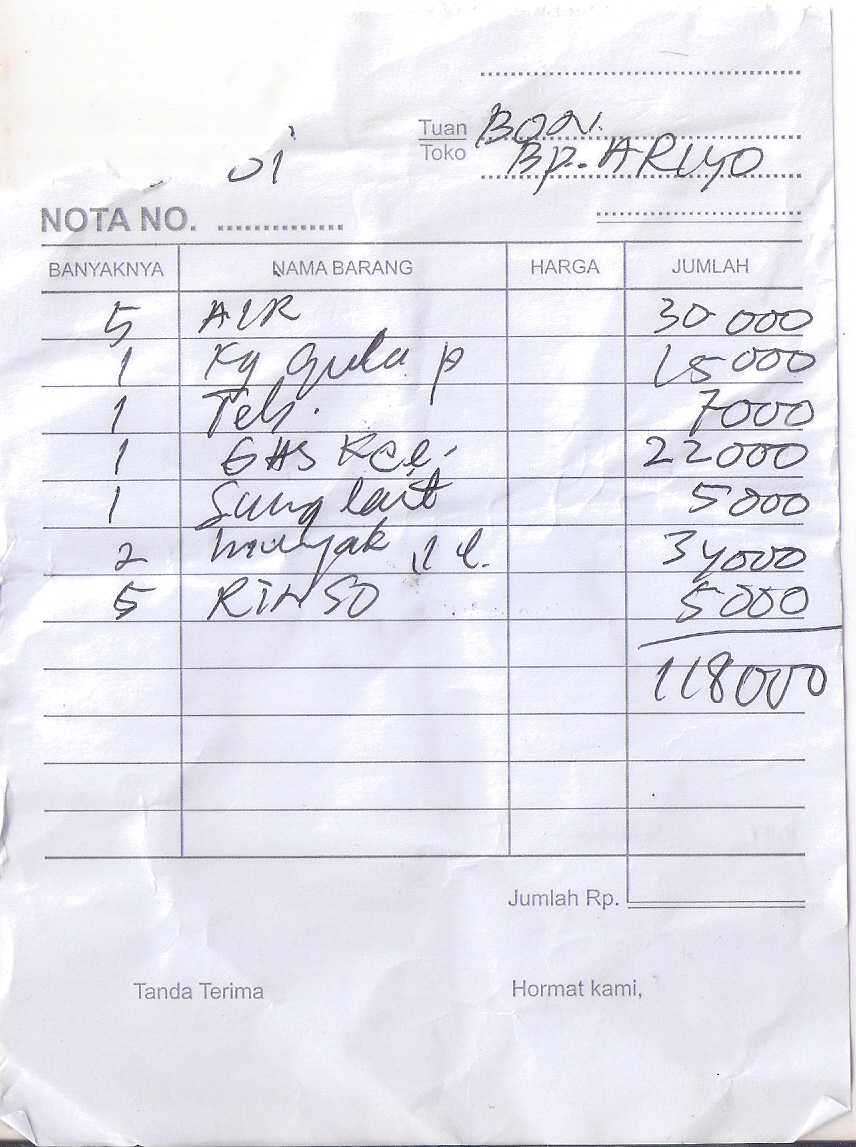 01
Tuan BON.
Toko Bp. ARIYO
NOTA NO. ..............
BANYAKNYA NAMA BARANG HARGA JUMLAH
5 AIR 30 000
1 Kg gula p 15 000
1 Teh. 7000
1 GAS Kce. 22000
1 Sung lait 5000
2 minyak 1 l. 34000
5 RINSO 5000
118000
Jumlah Rp.
Tanda Terima Hormat kami,